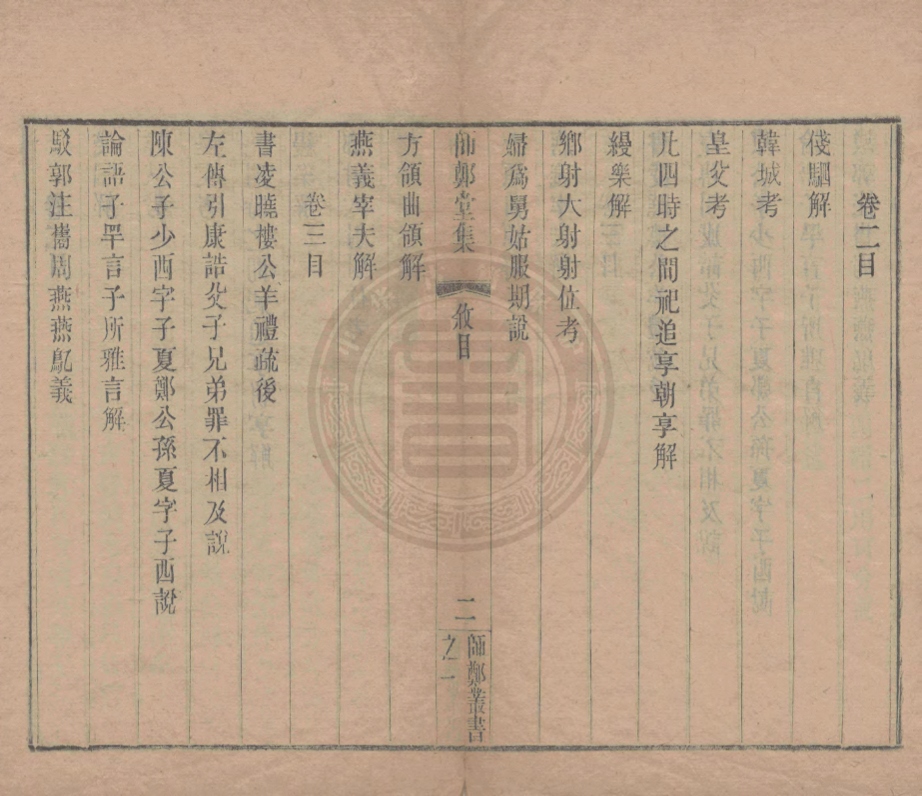 卷二目
俴駟解
韓城考
皇父考
凡四時之間祀追享朝享解
縵樂解
鄉射大射射位考
婦爲舅姑服期說
師鄭堂集
敘目
二
師鄭叢書
之二
方領曲領解
燕義宰夫解
卷三目
書凌曉樓公羊禮疏後
左傳引康誥父子兄弟罪不相及說
陳公子少西字子夏鄭公孫夏字子西說
論語子罕言子所雅言解
駁郭注巂周燕燕鳦義